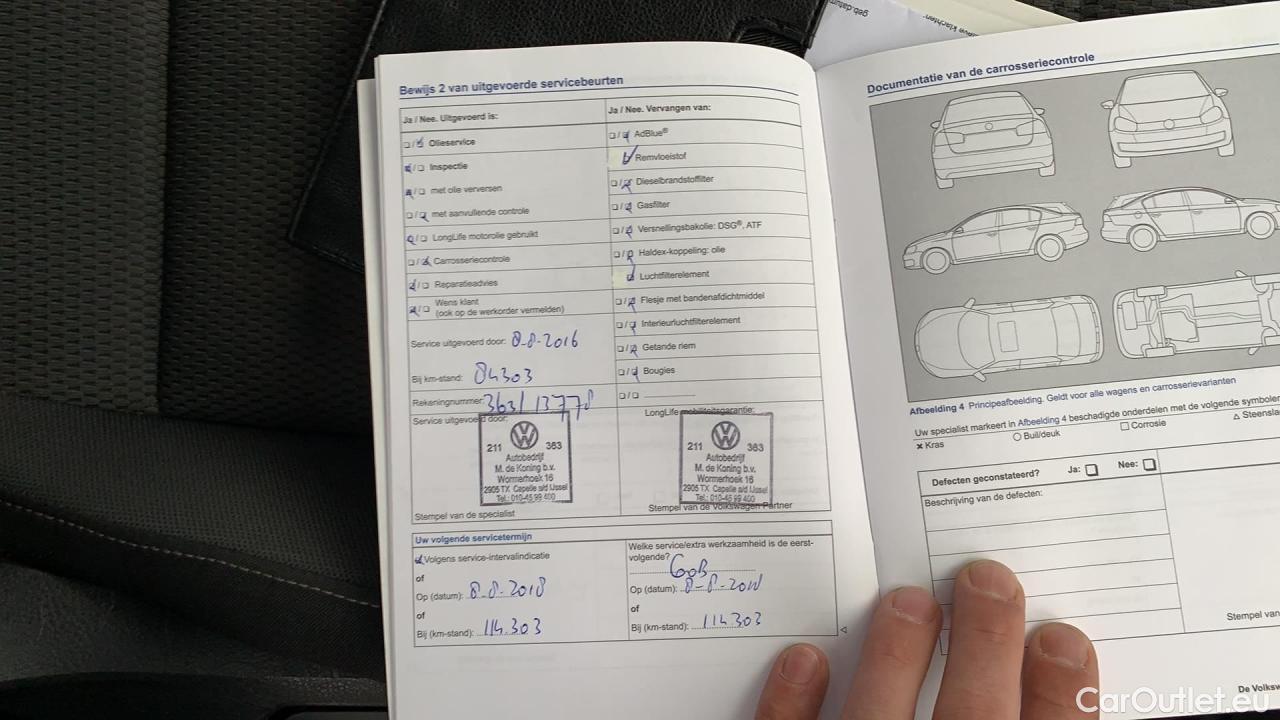 geb.datum
klachten
Bewijs 2 van uitgevoerde servicebeurten
Ja / Nee. Uitgevoerd is:
Olieservice
Inspectie
met olie verversen
met aanvullende controle
LongLife motorolie gebruikt
Carrosseriecontrole
Reparatieadvies
Wens klant
(ook op de werkorder vermelden)
Service uitgevoerd door: 8-8-2016
Bij km-stand: 84303
Rekeningnummer: 3631 13778
Service uitgevoerd door:
211 363
Autobedrijf
M. de Koning b.v.
Wormerhoek 16
2905 TX Capelle a/d IJssel
Tel.: 010-45 99 400
Stempel van de specialist
Ja / Nee. Vervangen van:
AdBlue®
Remvloeistof
Dieselbrandstoffilter
Gasfilter
Versnellingsbakolie: DSG®, ATF
Haldex-koppeling: olie
Luchtfilterelement
Flesje met bandenafdichtmiddel
Interieurluchtfilterelement
Getande riem
Bougies
LongLife mobiliteitsgarantie:
211 363
Autobedrijf
M. de Koning b.v.
Wormerhoek 16
2905 TX Capelle a/d IJssel
Tel.: 010-45 99 400
Stempel van de Volkswagen Partner
Uw volgende servicetermijn
Volgens service-intervalindicatie
of
Op (datum): 8-8-2018
of
Bij (km-stand): 114.303
Welke service/extra werkzaamheid is de eerst-
volgende?
Op (datum): 8-8-2018
of
Bij (km-stand): 114303
Documentatie van de carrosseriecontrole
Afbeelding 4 Principeafbeelding. Geldt voor alle wagens en carrosserievarianten
Uw specialist markeert in Afbeelding 4 beschadigde onderdelen met de volgende symbolen
× Kras ○ Buil/deuk □ Corrosie △ Steensla
Defecten geconstateerd? Ja: Nee:
Beschrijving van de defecten:
Stempel van
De Volksw
CarOutlet.eu